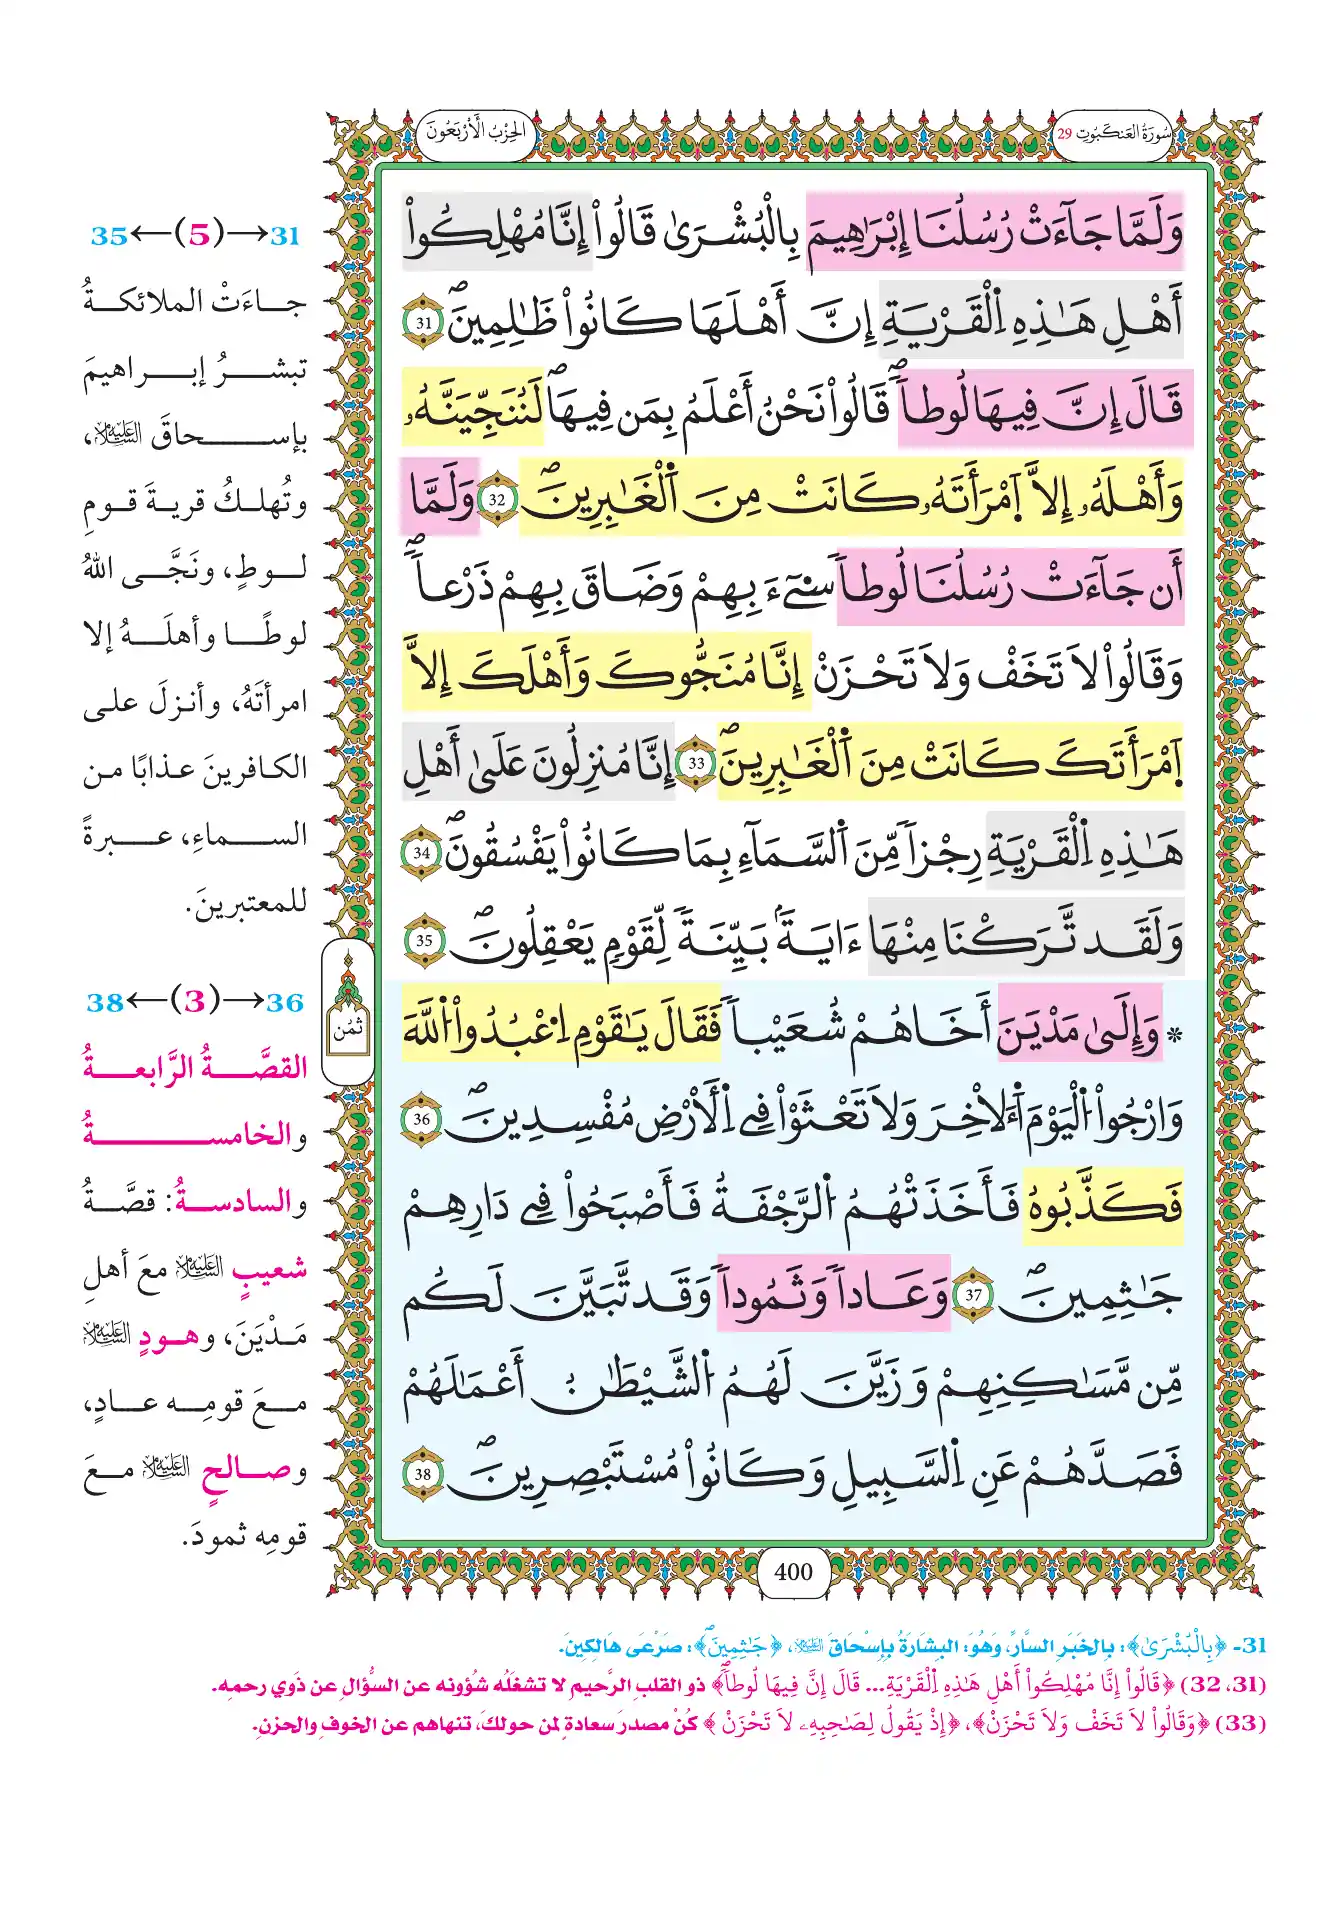 سُورَةُ العَنكَبُوتِ 29
الحِزْبُ الأَرْبَعُونَ
وَلَمَّا جَآءَتْ رُسُلُنَا إِبْرَٰهِيمَ بِالْبُشْرَىٰ قَالُواْ إِنَّا مُهْلِكُواْ
أَهْلِ هَٰذِهِ اِلْقَرْيَةِ إِنَّ أَهْلَهَا كَانُواْ ظَٰلِمِينَۖ 31
قَالَ إِنَّ فِيهَا لُوطاٗۖ قَالُواْ نَحْنُ أَعْلَمُ بِمَن فِيهَاۖ لَنُنَجِّيَنَّهُۥ
وَأَهْلَهُۥ إِلاَّ اَمْرَأَتَهُۥ كَانَتْ مِنَ اَلْغَٰبِرِينَۖ 32 وَلَمَّا
أَن جَآءَتْ رُسُلُنَا لُوطاٗ سِےٓءَ بِهِمْ وَضَاقَ بِهِمْ ذَرْعاٗۖ
وَقَالُواْ لاَ تَخَفْ وَلاَ تَحْزَنْ إِنَّا مُنَجُّوكَ وَأَهْلَكَ إِلاَّ
اَمْرَأَتَكَ كَانَتْ مِنَ اَلْغَٰبِرِينَۖ 33 إِنَّا مُنزِلُونَ عَلَىٰ أَهْلِ
هَٰذِهِ اِلْقَرْيَةِ رِجْزاٗ مِّنَ اَلسَّمَآءِ بِمَا كَانُواْ يَفْسُقُونَۖ 34
وَلَقَد تَّرَكْنَا مِنْهَا ءَايَةَۢ بَيِّنَةٗ لِّقَوْمٖ يَعْقِلُونَۖ 35
* وَإِلَىٰ مَدْيَنَ أَخَاهُمْ شُعَيْباٗ فَقَالَ يَٰقَوْمِ اِ۟عْبُدُواْ اُللَّهَ
وَارْجُواْ اُلْيَوْمَ اَ۬لَاخِرَ وَلاَ تَعْثَوْاْ فِے اِلَارْضِ مُفْسِدِينَۖ 36
فَكَذَّبُوهُ فَأَخَذَتْهُمُ اُلرَّجْفَةُ فَأَصْبَحُواْ فِے دَارِهِمْ
جَٰثِمِينَۖ 37 وَعَاداٗ وَثَمُوداٗ وَقَد تَّبَيَّنَ لَكُم
مِّن مَّسَٰكِنِهِمْ وَزَيَّنَ لَهُمُ اُلشَّيْطَٰنُ أَعْمَٰلَهُمْ
فَصَدَّهُمْ عَنِ اِلسَّبِيلِ وَكَانُواْ مُسْتَبْصِرِينَۖ 38
ثُمُن
400
31→(5)←35
جـاءَتْ الملائكـةُ
تبشـرُ إبـراهيمَ
بإسـحاقَ عليه السلام،
وتُهلـكُ قريـةَ قـومِ
لـوطٍ، ونَجَّـى اللهُ
لوطًـا وأهلَـهُ إلا
امرأتَهُ، وأنـزلَ علـى
الكافـرينَ عـذابًا مـن
السـماءِ، عـبرةً
للمعتبرينَ.
36→(3)←38
القصَّـةُ الرَّابعـةُ
والخامسـةُ
والسادسـةُ: قصَّـةُ
شعيبٍ عليه السلام معَ أهلِ
مَدْيَنَ، وهـودٍ عليه السلام
مـعَ قومِـه عـادٍ،
وصـالحٍ عليه السلام مـعَ
قومِه ثمودَ.
31- ﴿بِالْبُشْرَىٰ﴾: بِالخَبَرِ السَّارِّ، وَهُوَ: البِشَارَةُ بِإِسْحَاقَ عليه السلام، ﴿جَٰثِمِينَۖ﴾: صَرْعَى هَالِكِينَ.
(31، 32) ﴿قَالُواْ إِنَّا مُهْلِكُواْ أَهْلِ هَٰذِهِ اِلْقَرْيَةِ... قَالَ إِنَّ فِيهَا لُوطاٗۖ﴾ ذو القلبِ الرَّحيمِ لا تشغَلُه شؤونه عن السُّؤالِ عن ذَوي رحمِه.
(33) ﴿وَقَالُواْ لاَ تَخَفْ وَلاَ تَحْزَنْ﴾، ﴿إِذْ يَقُولُ لِصَٰحِبِهِۦ لاَ تَحْزَنْ﴾ كُنْ مصدرَ سعادةٍ لمن حولكَ، تنهاهم عن الخوفِ والحزنِ.